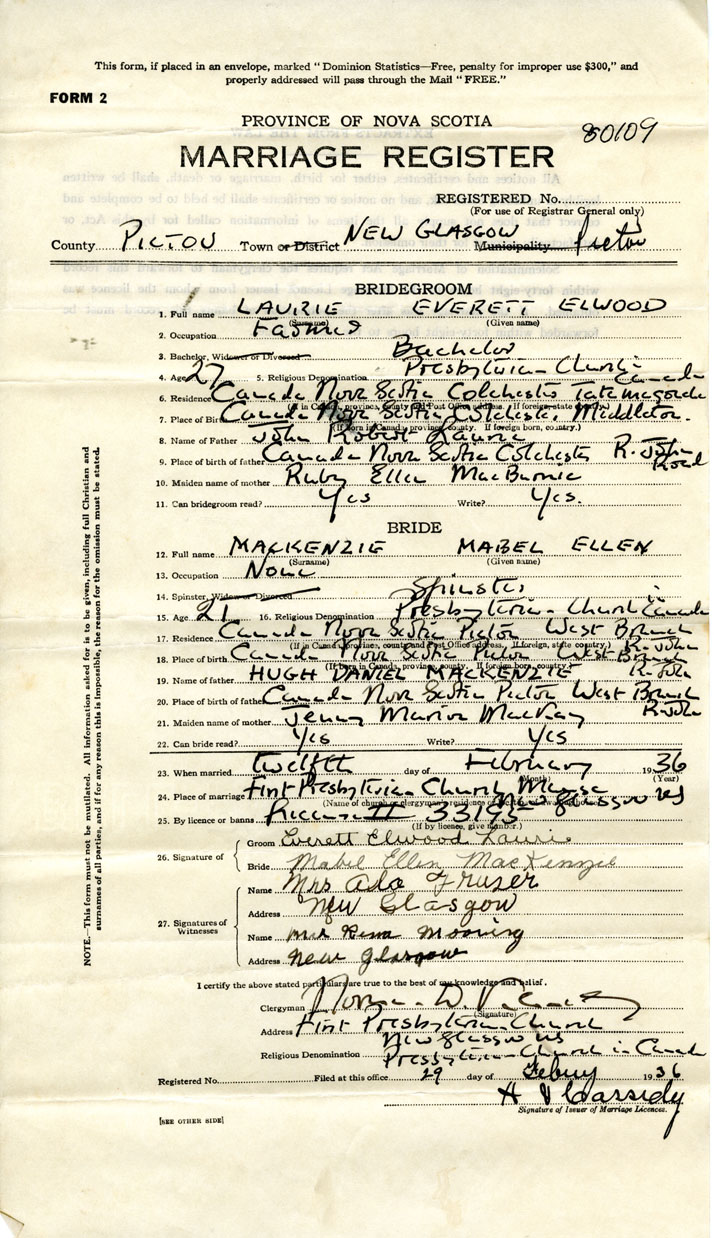 This form, if placed in an envelope, marked "Dominion Statistics—Free, penalty for improper use $300," and
properly addressed will pass through the Mail "FREE."
FORM 2
PROVINCE OF NOVA SCOTIA
80109
MARRIAGE REGISTER
REGISTERED No.
(For use of Registrar General only)
County PICTOU Town or District NEW GLASGOW Municipality Pictou
BRIDEGROOM
1. Full name LAURIE EVERETT ELWOOD
(Surname) (Given name)
2. Occupation Farmer
3. Bachelor, Widower or Divorced Bachelor
4. Age 27 5. Religious Denomination Presbyterian Church in Canada
6. Residence Canada Nova Scotia Colchester Tatamagouche
(If in Canada, province, county and Post Office address. If foreign, state country.)
7. Place of Birth Canada Nova Scotia Colchester Middleton
(If born in Canada, province, county. If foreign born, country.)
8. Name of Father John Robert Laurie
9. Place of birth of father Canada Nova Scotia Colchester R. John Road
10. Maiden name of mother Ruby Ellen MacBurnie
11. Can bridegroom read? Yes Write? Yes.
BRIDE
12. Full name MACKENZIE MABEL ELLEN
(Surname) (Given name)
13. Occupation None
14. Spinster, Widow or Divorced Spinster
15. Age 21 16. Religious Denomination Presbyterian Church in Canada
17. Residence Canada Nova Scotia Pictou West Branch R. John
(If in Canada, provinces, county and Post Office address. If foreign, state country.)
18. Place of birth Canada Nova Scotia Pictou West Branch R. John
(If born in Canada, province, county. If foreign born, country.)
19. Name of father HUGH DANIEL MACKENZIE
20. Place of birth of father Canada Nova Scotia Pictou West Branch R. John
21. Maiden name of mother Jenny Marion MacKay
22. Can bride read? Yes Write? Yes
23. When married twelfth day of February 1936
(Month) (Year)
24. Place of marriage First Presbyterian Church Manse New Glasgow NS
(Name of church or clergyman's residence
25. By licence or banns Licence II 33195
(If by licence, give number.)
26. Signature of
Groom Everett Elwood Laurie
Bride Mabel Ellen MacKenzie
27. Signatures of Witnesses
Name Mrs Ada Fraser
Address New Glasgow
Name Mooring
Address New Glasgow
I certify the above stated particulars are true to the best of my knowledge and belief.
Clergyman Norman D.
(Signature)
Address First Presbyterian Church
New Glasgow NS
Religious Denomination Presbyterian Church in Canada
Registered No. Filed at this office 29 day of Febuy 1936
H V Cassidy
Signature of Issuer of Marriage Licences.
[SEE OTHER SIDE]
NOTE.—This form must not be mutilated. All information asked for is to be given, including full Christian and
surnames of all parties, and if for any reason this is impossible, the reason for the omission must be stated.